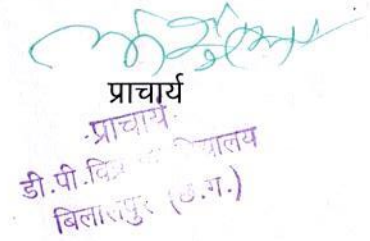 प्राचार्य
प्राचार्य
डी.पी.विप्र
बिलासपुर (छ.ग.)